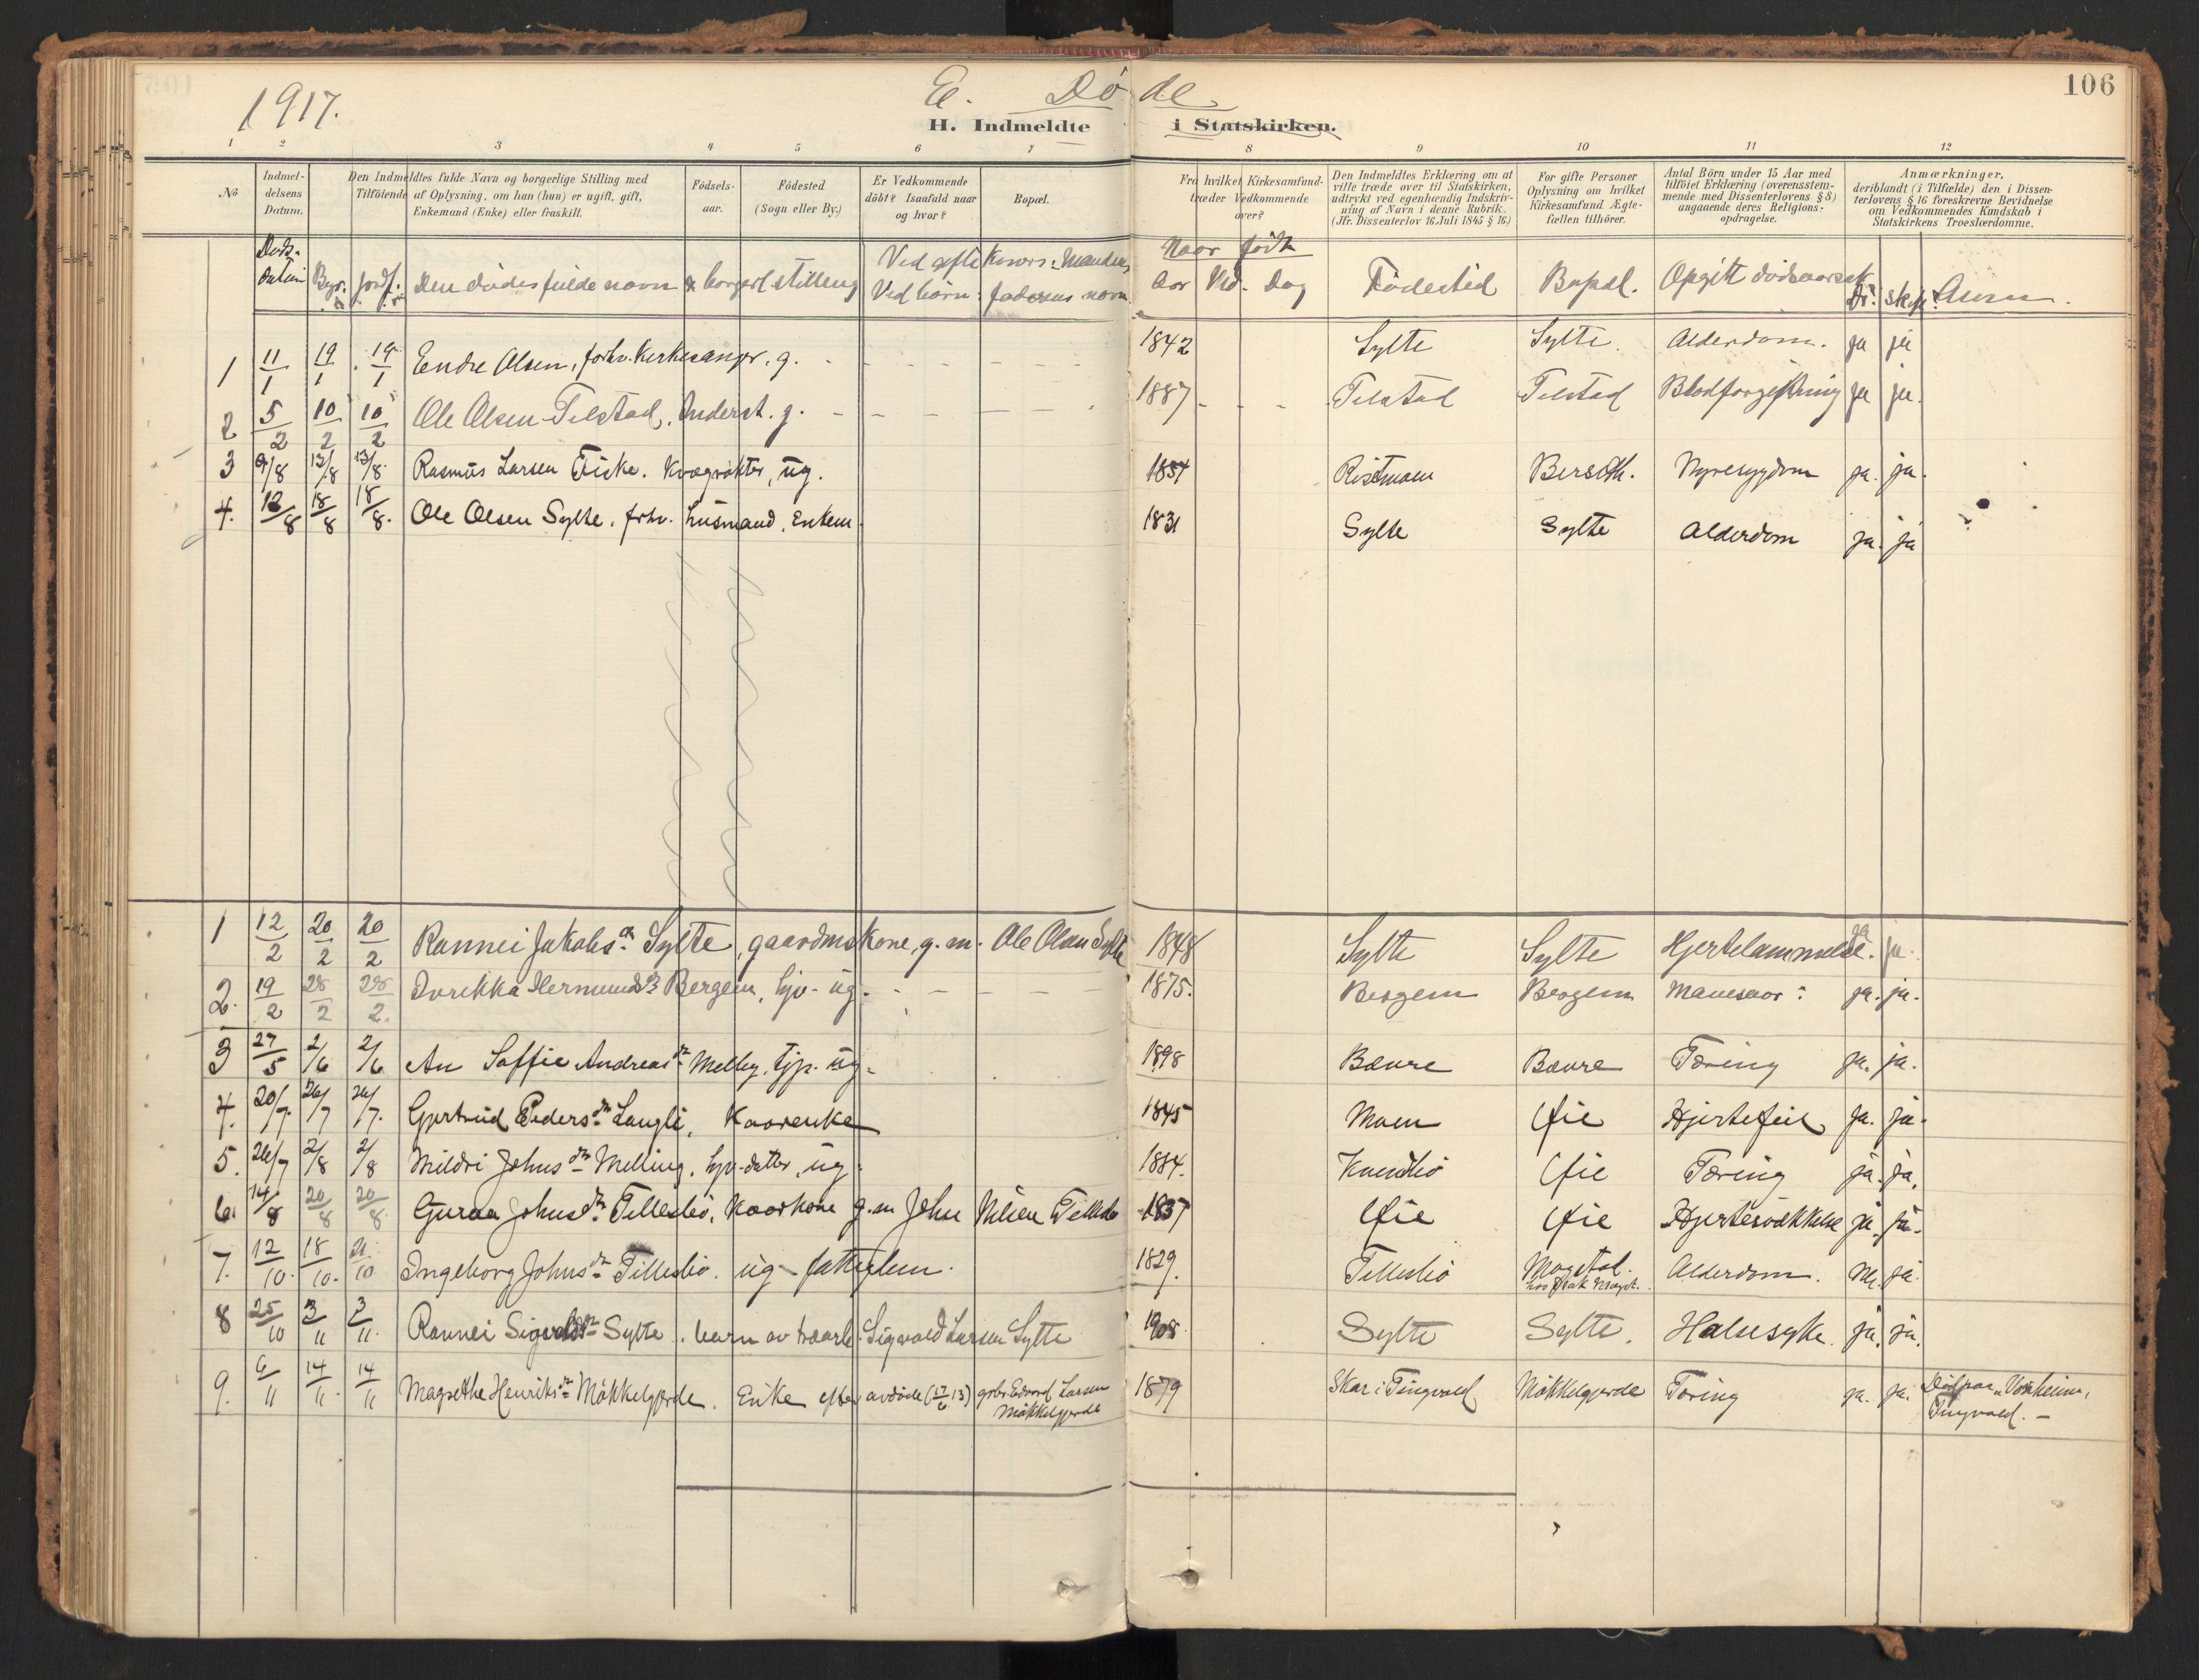 106
1917.
E. Döde
H. Indmeldte i Statskirken.
1 2 3 4 5 6 7 8 9 10 11 12
No
Indmeldelsens Datum.
Den Indmeldtes fulde Navn og borgerlige Stilling med
Tilföiende af Oplysning, om han (hun) er ugift, gift,
Enkemand (Enke) eller fraskilt.
Födsels-
aar.
Födested
(Sogn eller By.)
Er Vedkommende
döbt? Isaafald naar
og hvor?
Bopæl.
Fra hvilket Kirkesamfund
træder Vedkommende
over?
Den Indmeldtes Erklæring om at
ville træde over til Statskirken,
udtrykt ved egenhændig Indskriv-
ning af Navn i denne Rubrik.
(Jfr. Dissenterlov 16 Juli 1845 § 16.)
For gifte Personer
Oplysning om hvilket
Kirkesamfund Ægte-
fællen tilhører.
Antal Börn under 15 Aar med
tilföiet Erklæring (overensstem-
mende med Dissenterlovens § 8)
angaaende deres Religions-
opdragelse.
Anmærkninger,
deriblandt (i Tilfælde) den i Dissen-
terlovens § 16 foreskrevne Bevidnelse
om Vedkommendes Kundskab i
Statskirkens Troeslærdomme.
Döds-
datum Begr. Jordf. Den dödes fulde navn & borgerl. stilling Ved gifte Koner: Mandens
Ved börn: faderens navn.
Naar födt
Aar Md. Dag Födested Bopæl. Opgitt dödsaarsak Dr. skif. Anm.
1 11/1 19/1 19/1 Endre Olsen, forhv. Kirkesanger, g. 1842 Sylte Sylte. Alderdom. ja ja
2 5/2 10/2 10/2 Ole Olsen Tilstad, g. 1887 Tilstad Tilstad Blodforgiftning ja ja.
3 9/8 13/8 13/8. Rasmus Larsen Fiske. Kvægrökter, ug. 1854 Berseth. Nyresygdom ja. ja.
4. 12/8 18/8 18/8. Ole Olsen Sylte, frhv. husmand, Enkem. 1831 Sylte Sylte Alderdom ja. ja
1 12/2 20/2 20/2 Rannei Jakobsdr Sylte, gaardmskone, g. m. Ole Olsen Sylte 1848 Sylte Sylte Hjertelammelse. ja ja.
2. 19/2 28/2 28/2. Bergem, ug. 1875. Bergem Bergem Mavesaar ja. ja.
3 27/5 2/6 2/6 An Saffie Andreasdr Melby, tjp. ug. 1898 Bævre Bævre Tæring ja. ja.
4. 20/7. 26/7 26/7. Gjertrud Pedersdr Langli, Kaarenke 1845 Moen Öie Hjertefeil ja. ja.
5. 26/7 2/8 2/8 Mildri Johnsdr Melling, datter, ug. 1884. Kvendbö Öie Tæring ja. ja.
6. 14/8 20/8 20/8. Guraa Johnsdr Tellesbö, Kaarkone g. m John Nilsen Tellesbö 1837 Öie Öie Hjertesvækkelse ja. ja.
7. 12/10. 18/10. 21/10 Ingeborg Johnsdr Tillesbö. ug fattiglem. 1829. Tillesbö Alderdom. ja.
8 25/10 3/11 3/11. Rannei Sigvaldsdr Sylte, barn av Sigvald Larsen Sylte 1908 Sylte Sylte. Halssyke. ja. ja.
9. 6/11 14/11. 14/11 Magrethe Henriksdr Mökkelgjerde. Enke efter avdöde (27/6 13) gbr. Edvard Larsen
Mökkelgjerde 1879 Skar i Tingvold Mökkelgjerde Tæring ja. ja. Död paa "Vonheim",
Tingvold. –